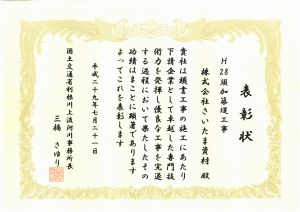 表彰状
H28須加築堤工事
株式会社さいたま資材 殿
貴社は頭書工事の施工にあたり
下請企業として卓越した専門技
術力を発揮し優良な工事を完遂
する過程において果たしたその
功績はまことに顕著であります
よってこれを表彰します
平成二十九年七月二十一日
国土交通省利根川上流河川事務所長
三橋 さゆり